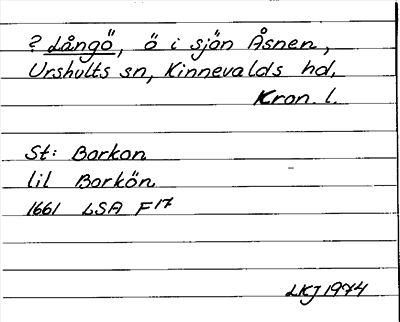 ? Långö, ö i sjön Åsnen,
Urshults sn, Kinnevalds hd,
Kron. l.
St: Borkon
lil Borkön
1661 LSA F 17
LKJ 1974